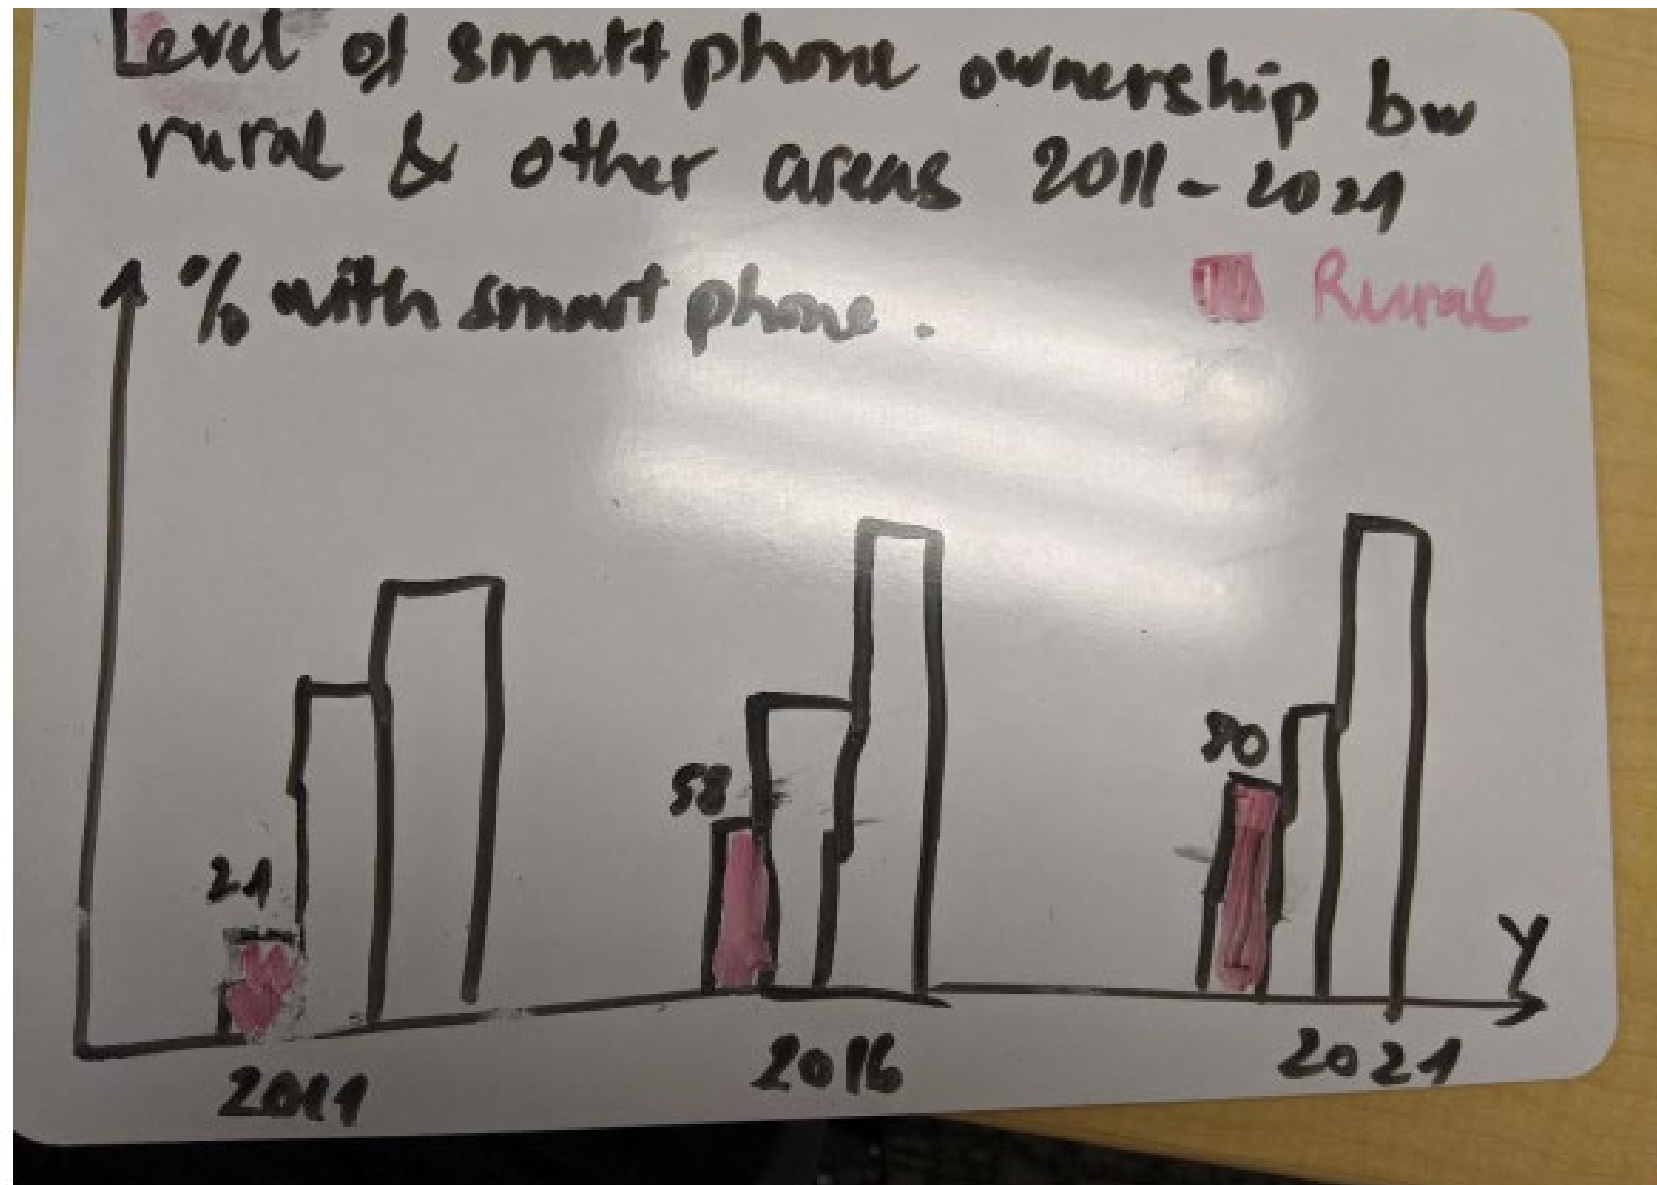 Level of smartphone ownership bw
rural & other areas 2011-2021
% with smart phone.
Rural
21
58
80
Y
2011
2016
2021